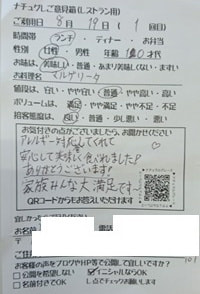 ナチュクレご意見箱(レストラン用)
ご利用日 8月 19日( 1 回目)
時間帯 ランチ・ディナー・お弁当
女性・男性 年齢 代
お味は、美味しい・普通・あまり美味しくない・まずい
お料理名 マルゲリータ
値段は、安い・やや安い・普通・やや高い・高い
ボリュームは 満足・やや満足・普通・やや不足・不足
接客態度は 良い・普通・少し悪い・悪い
お気付きの点がございましたら、お聞かせください
アレルギー対応してくれて
安心して美味しく食べれました!
ありがとうございます!
家族みんな大満足です〜
QRコードからもお答えいただけます
宜しかったら
お名前 電話
ご住
お客様の声をブログやHP等で公開して宜しいですか?
□公開を希望しない ☑イニシャルならOK
□名前付きでOK レ点でチェックお願いします